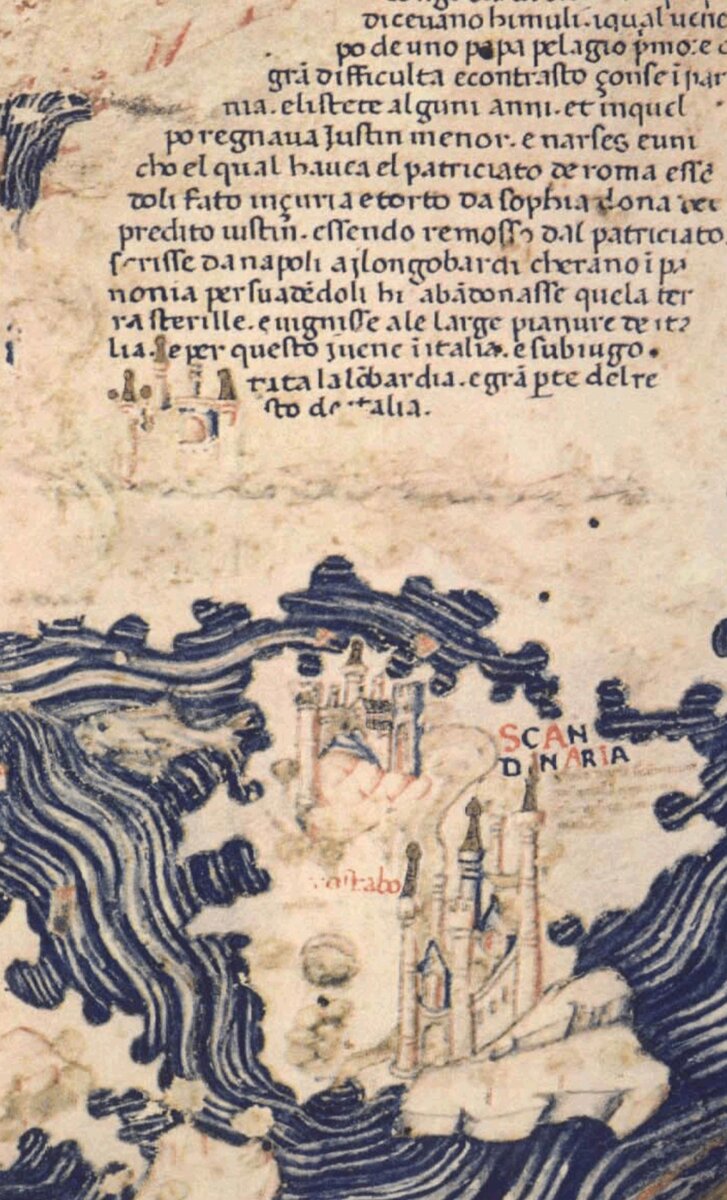 diceuano himuli. iqual uene
po de uno papa pelagio p̄mo: e c
grā difficulta econtrasto çonse ī par
nia. elistete alguni anni. et inquel
po regnaua Justin menor. e narses euni
cho el qual hauea el patriciato de roma essē
doli fato inçuria etorto da sophia dona del
predito iustin. essendo remosso dal patriciato
scrisse da napoli ai longobardi cherano ī pa
nonia persuadēdoli hi abādonasse quela ter
ra sterille. e uignisse ale large pianure de ita
lia. e per questo iuene ī italia. e subiugo.
tuta la lōbardia. e grā pte del re
sto de italia.
SCAN
DINARIA